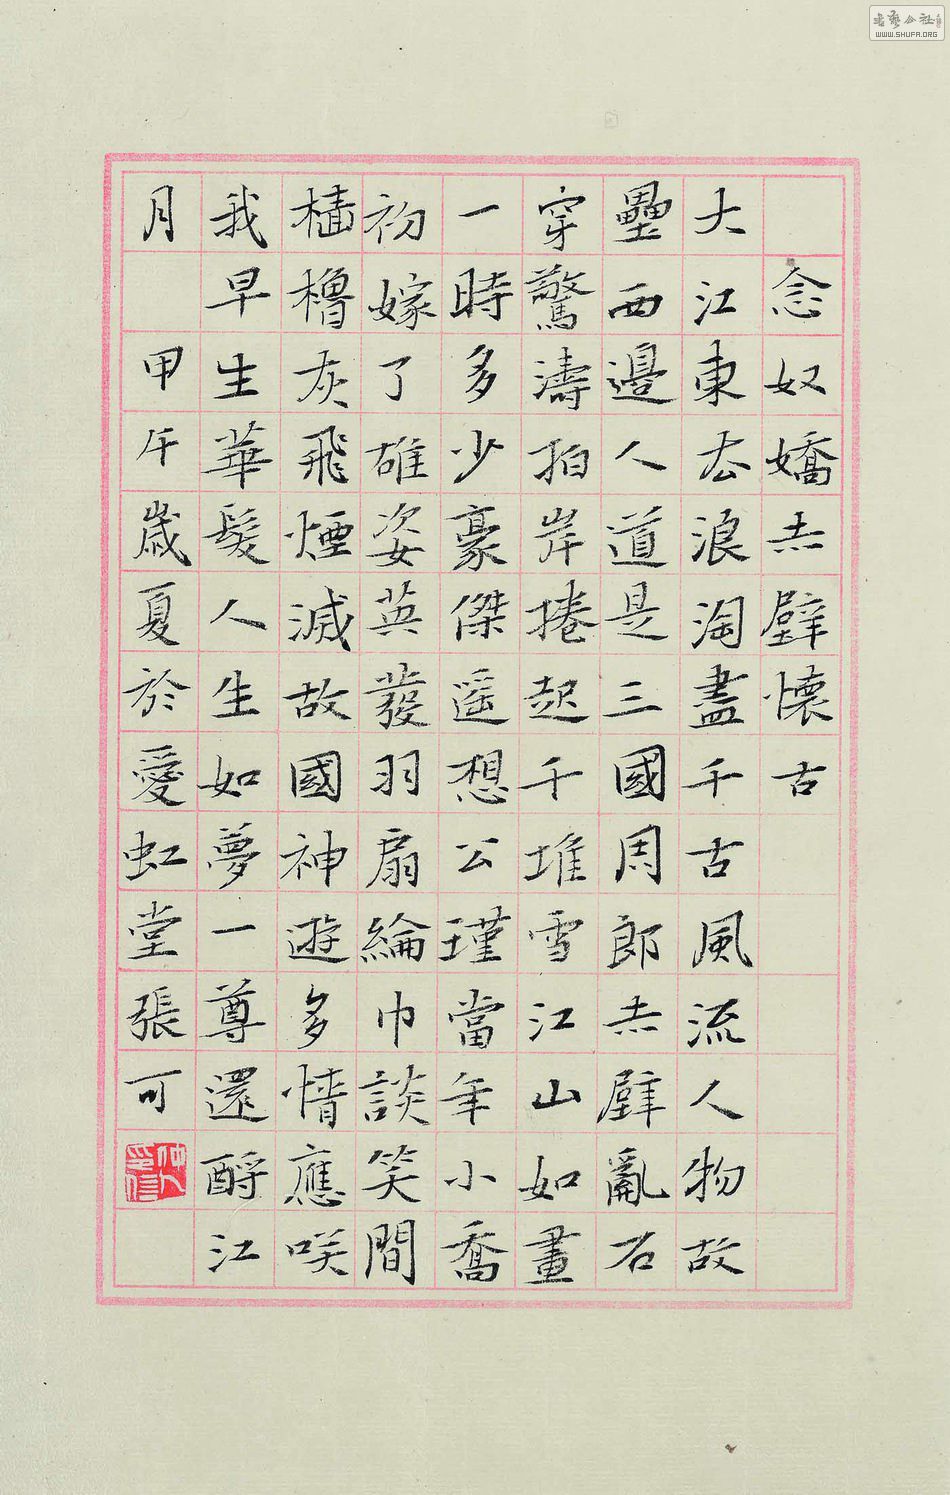 念奴嬌赤壁懷古
大江東去浪淘盡千古風流人物故
壘西邊人道是三國周郎赤壁亂石
穿驚濤拍岸捲起千堆雪江山如畫
一時多少豪傑遥想公瑾當年小喬
初嫁了雄姿英發羽扇綸巾談笑間
檣櫓灰飛煙滅故國神遊多情應咲
我早生華髮人生如夢一尊還酹江
月 甲午歲夏於愛虹堂張可
書藝公社
WWW.SHUFA.ORG